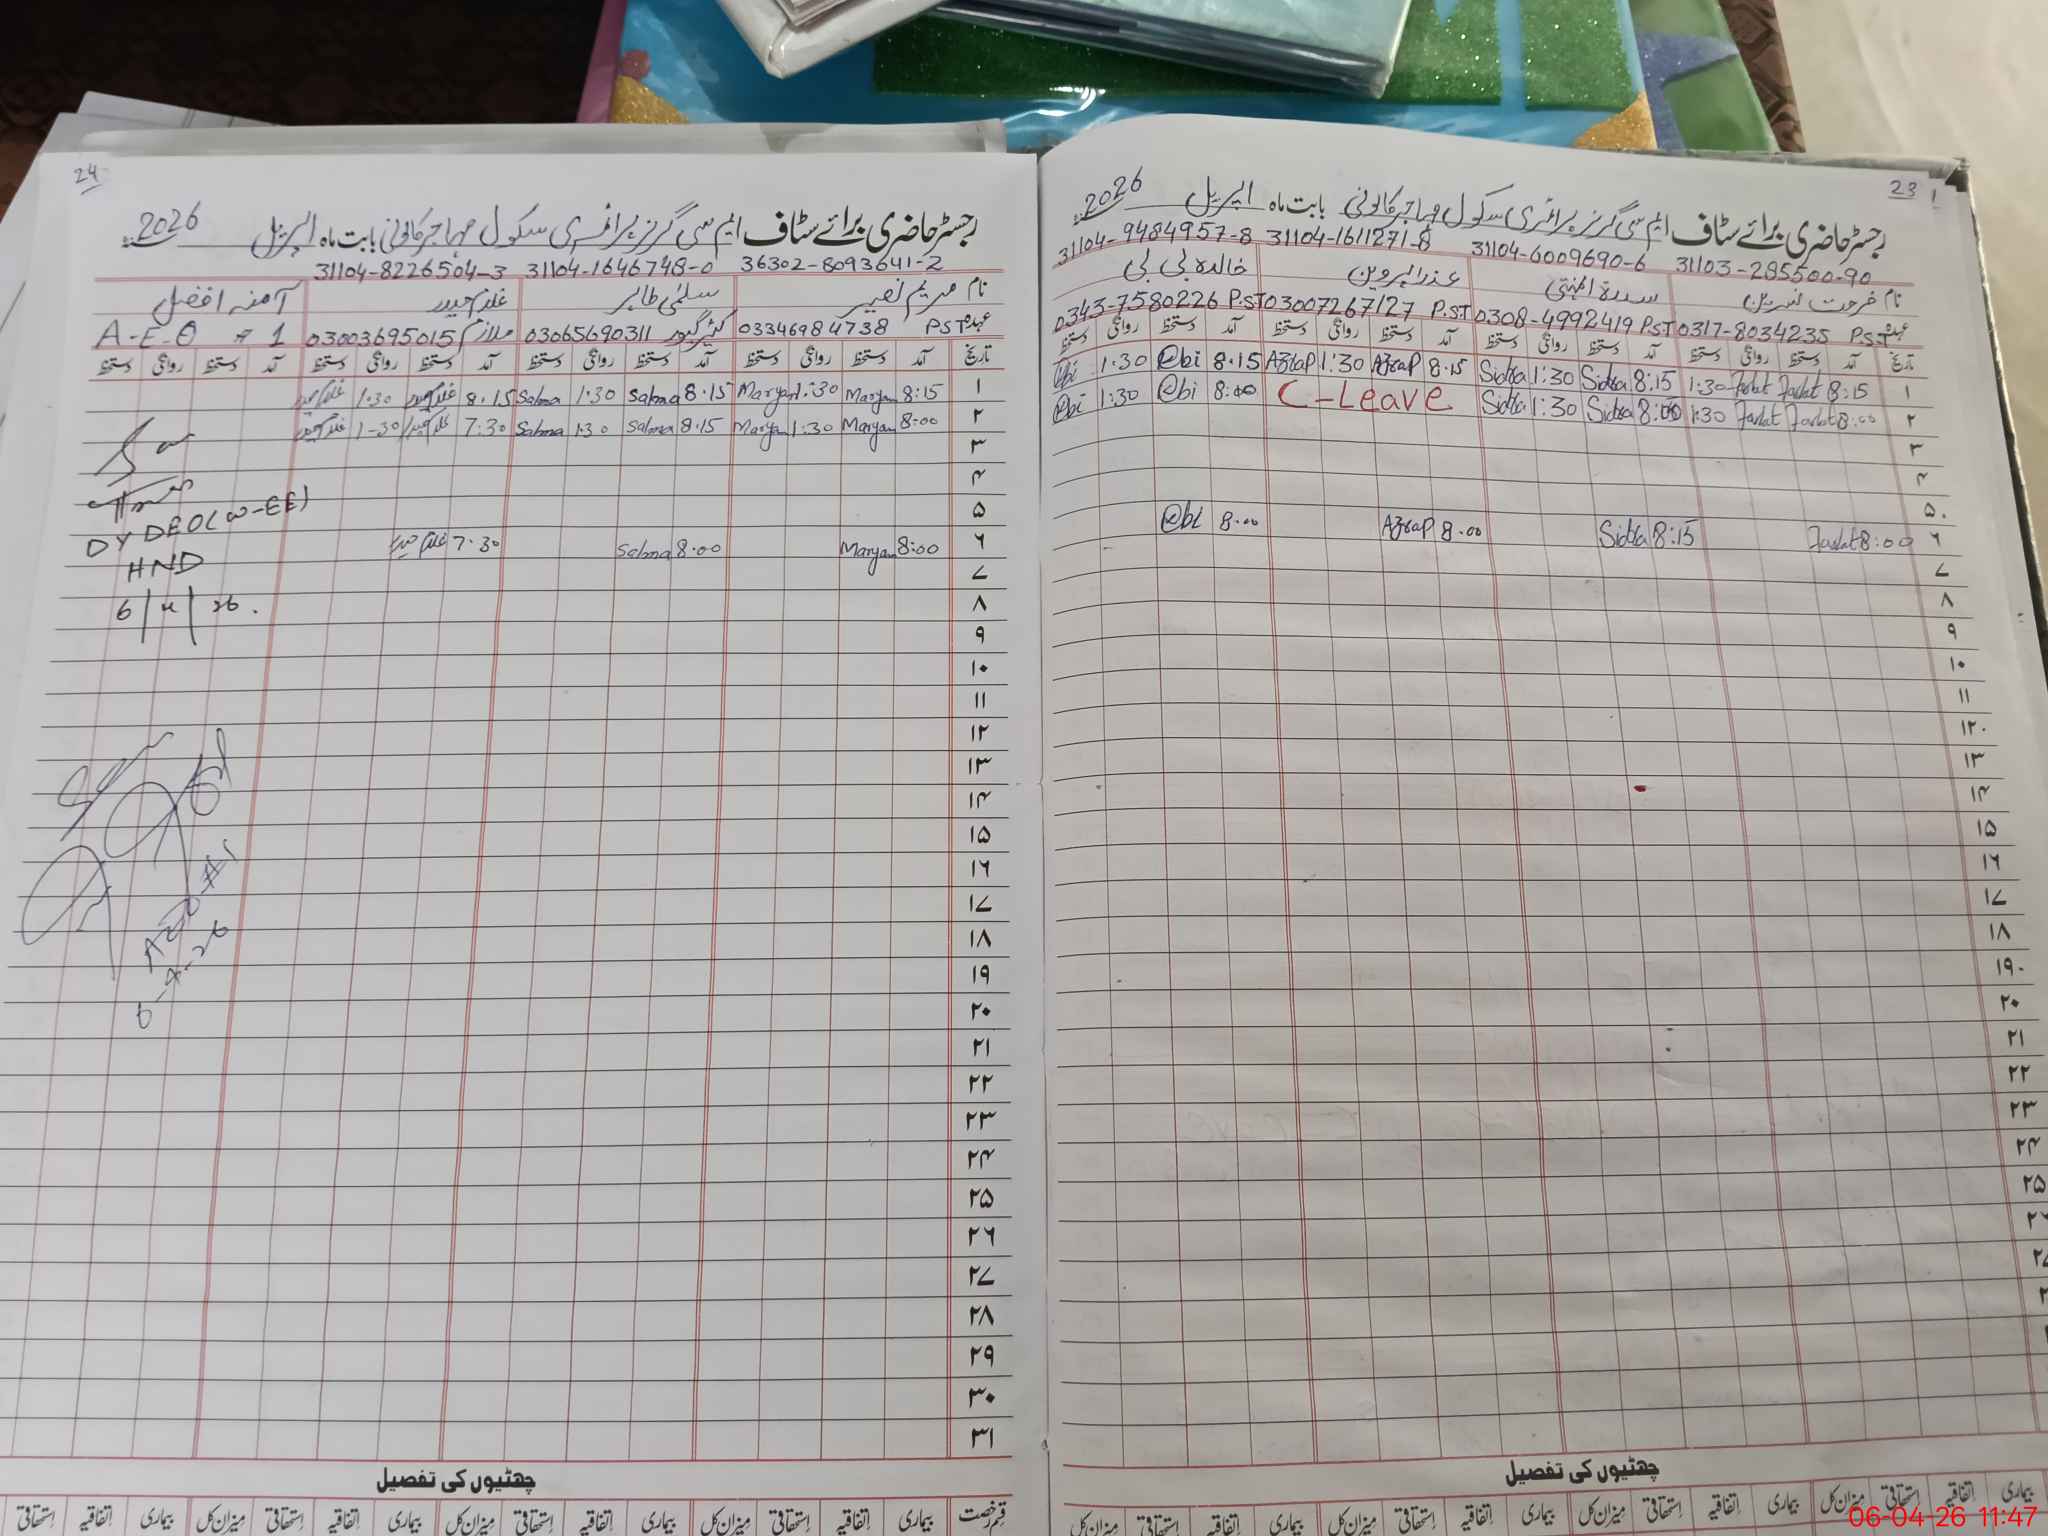 23
رجسٹر حاضری برائے سٹاف ایم سی گرلز پرائمری سکول مہاجر کالونی بابت ماہ اپریل 2026
31103-285500-90 31104-6009690-6 31104-1611271-8 31104-9484957-8
نام فرحت نسرین سدرۃ المنتہیٰ عذرا پروین خالدہ بی بی
عہدہ P.S.T 0317-8034235 P.S.T 0308-4992419 P.S.T 03007267127 P.S.T 0343-7580226
تاریخ آمد دستخط روانگی دستخط آمد دستخط روانگی دستخط آمد دستخط روانگی دستخط آمد دستخط روانگی دستخط
۱ 8:15 Farhat Farhat 1:30 8:15 Sidra 1:30 Sidra 8.15 Azrap 1:30 Azrap 8.15 @bi 1.30 @bi
۲ 8:00 Farhat Farhat 1:30 8:00 Sidra 1:30 Sidra C-Leave 8:00 @bi 1:30 @bi
۳
۴
۵
۶ 8:00 Farhat 8:15 Sidra 8.00 Azrap 8.00 @bi
۷
۸
۹
۱۰
۱۱
۱۲
۱۳
۱۴
۱۵
۱۶
۱۷
۱۸
۱۹
۲۰
۲۱
۲۲
۲۳
۲۴
۲۵
چھٹیوں کی تفصیل
بیماری اتفاقیہ استحقاقی میزان کل بیماری اتفاقیہ استحقاقی میزان کل بیماری اتفاقیہ استحقاقی میزان کل بیماری اتفاقیہ استحقاقی میزان کل
24
رجسٹر حاضری برائے سٹاف ایم سی گرلز پرائمری سکول مہاجر کالونی بابت ماہ اپریل 2026
36302-8093641-2 31104-1646748-0 31104-8226504-3
نام مریم نصیر سلمٰی طاہر غلام حیدر آمنہ افضل
عہدہ PST 03346984738 کیئر گیور 03065690311 ملازم 03003695015 A-E-O # 1
تاریخ آمد دستخط روانگی دستخط آمد دستخط روانگی دستخط آمد دستخط روانگی دستخط آمد دستخط روانگی دستخط
۱ 8:15 Maryam 1:30 Maryam 8.15 Salma 1:30 Salma 8.15 غلام حیدر 1:30 غلام حیدر
۲ 8:00 Maryam 1:30 Maryam 8.15 Salma 1:30 Salma 7:30 غلام حیدر 1-30 غلام حیدر
۳
۴
۵
۶ 8:00 Maryam 8:00 Salma 7:30 غلام حیدر
۷
۸
۹
۱۰
۱۱
۱۲
۱۳
۱۴
۱۵
۱۶
۱۷
۱۸
۱۹
۲۰
۲۱
۲۲
۲۳
۲۴
۲۵
۲۶
۲۷
۲۸
۲۹
۳۰
۳۱
DY DEO (W-EE)
HND
6/4/26.
AEO #1
6-4-26
چھٹیوں کی تفصیل
قسم رخصت بیماری اتفاقیہ استحقاقی میزان کل بیماری اتفاقیہ استحقاقی میزان کل بیماری اتفاقیہ استحقاقی میزان کل بیماری اتفاقیہ استحقاقی
06-04-26 11:47